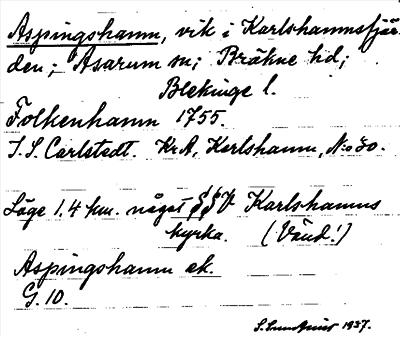 Aspingshamn, vik i Karlshamnsfjär-
den; Asarum sn; Bräkne hd;
Blekinge l.
Folkenhamn 1755.
J. S. Carlstedt. KrA, Karlshamn, N:o 30.
Läge 1.4 km. något SSV Karlshamns
kyrka. (Vänd!)
Aspingshamn ek.
G. 10.
1937.